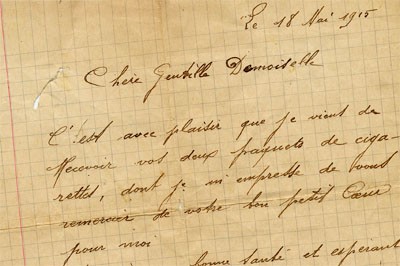 Le 18 Mai 1915
Chère Gentille Demoiselle
C'est avec plaisir que je vient de
Recevoir vos deux paquets de ciga-
rettes, dont je m'empresse de vous
remercier de votre bon petit Cœur
pour moi
bonne santé et espérant